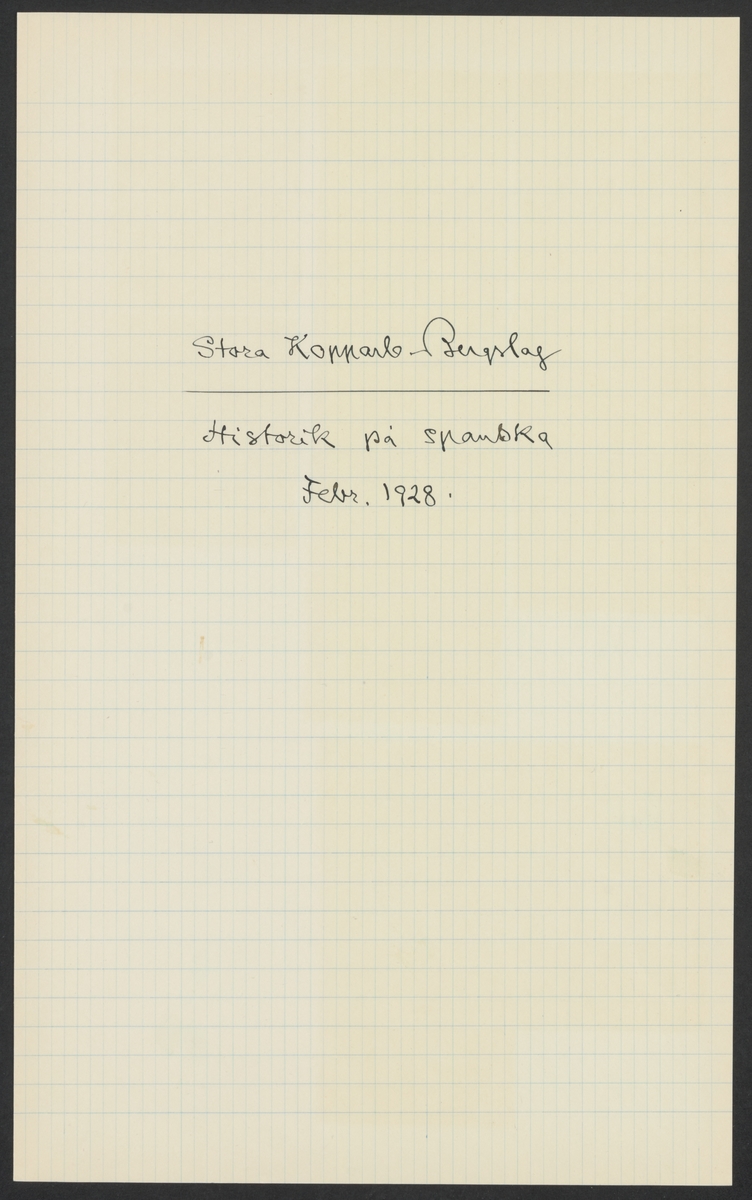 Stora Kopparb-Bergslag
Historik på spanska
Febr. 1928.